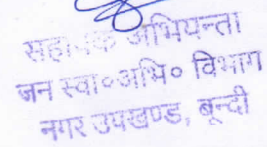 सहायक अभियन्ता
जन स्वा०अभि० विभाग
नगर उपखण्ड, बून्दी